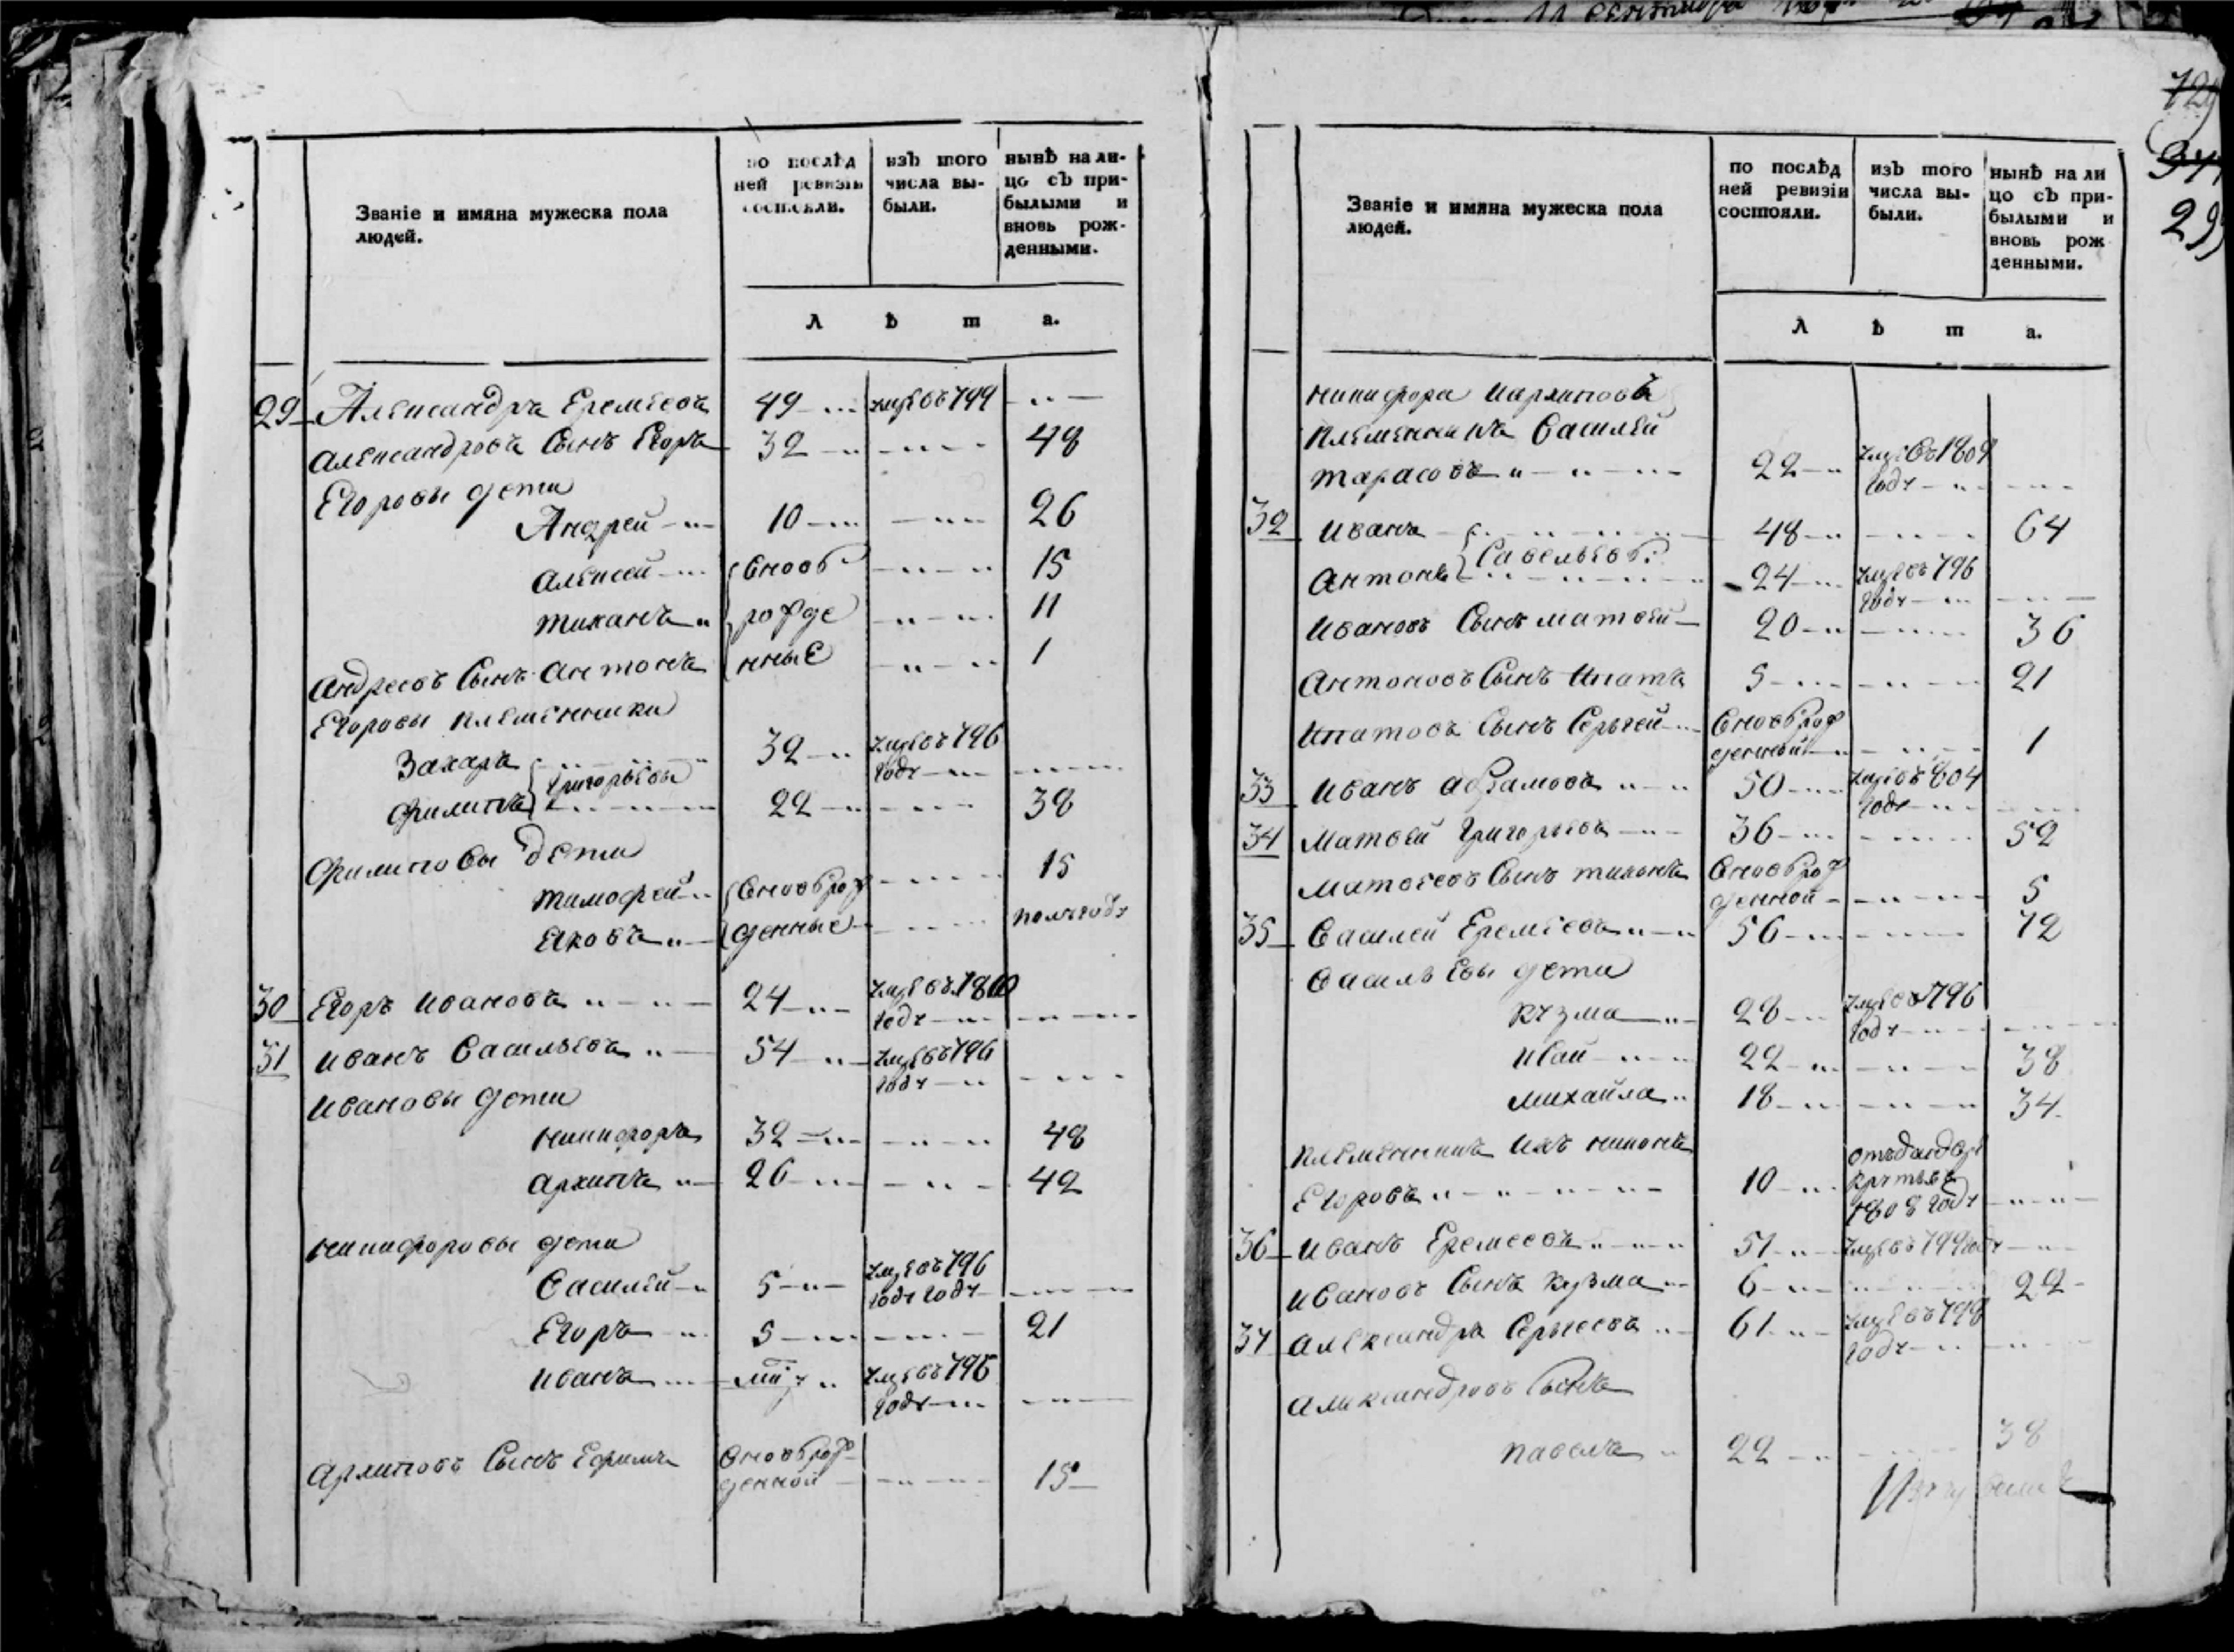 Званіе и имяна мужеска пола людей.
по послѣдней ревизіи состояли.
изъ того числа выбыли.
нынѣ на лицо съ прибылыми и вновь рожденными.
л ѣ т а.
29 Александръ Еремѣевъ 49 умре въ 799
Александровъ Сынъ Егоръ 32 48
Егоровы дети
Андрей 10 26
Алексей вновь 15
тиханъ рожде 11
Андреевъ Сынъ Антонъ нные 1
Егоровы племенники
Захаръ 32 умре въ 796
Григорьевы году
Филипъ 22 38
Филиповы дети
тимофей вновь рож 15
Яковъ денные полъгоду
30 Егоръ Ивановъ 24 умре въ 1810
году
31 Иванъ Васильевъ 54 умре въ 796
году
Ивановы дети
никифоръ 32 48
архипъ 26 42
никифоровы дети
Василей 5 умре въ 796
году
Егоръ 5 21
Иванъ умре въ 796
году
Архиповъ Сынъ Ефимъ вновь рож
денной 15
729
344
295
Званіе и имяна мужеска пола людей.
по послѣдней ревизіи состояли.
изъ того числа выбыли.
нынѣ на лицо съ прибылыми и вновь рожденными.
л ѣ т а.
никифора Иархипова
племенникъ Василей
тарасовъ 22 умре въ 1809
году
32 Иванъ 48 64
Савельевы
Антонъ 24 умре въ 796
году
Ивановъ Сынъ матвей 20 36
Антоновъ Сынъ Ипатъ 5 21
Ипатовъ Сынъ Сергей вновь рож
денный 1
33 Иванъ абрамовъ 50 умре въ 804
году
34 Матвей Григорьевъ 36 52
Матвеевъ Сынъ тихонъ вновь рож
денной 5
35 Василей Еремѣевъ 56 72
Васильевы дети
кузма 28 умре въ 796
году
Исай 22 38
михайла 18 34
племенникъ ихъ никонъ
Егоровъ 10 отъдан въ ре
круты въ
1808 году
36 Иванъ Еремеевъ 51 умре въ 799 году
Ивановъ Сынъ кузма 6 22
37 Александръ Сергеевъ 61 умре въ 798
году
Александровъ Сынъ
павелъ 22 38